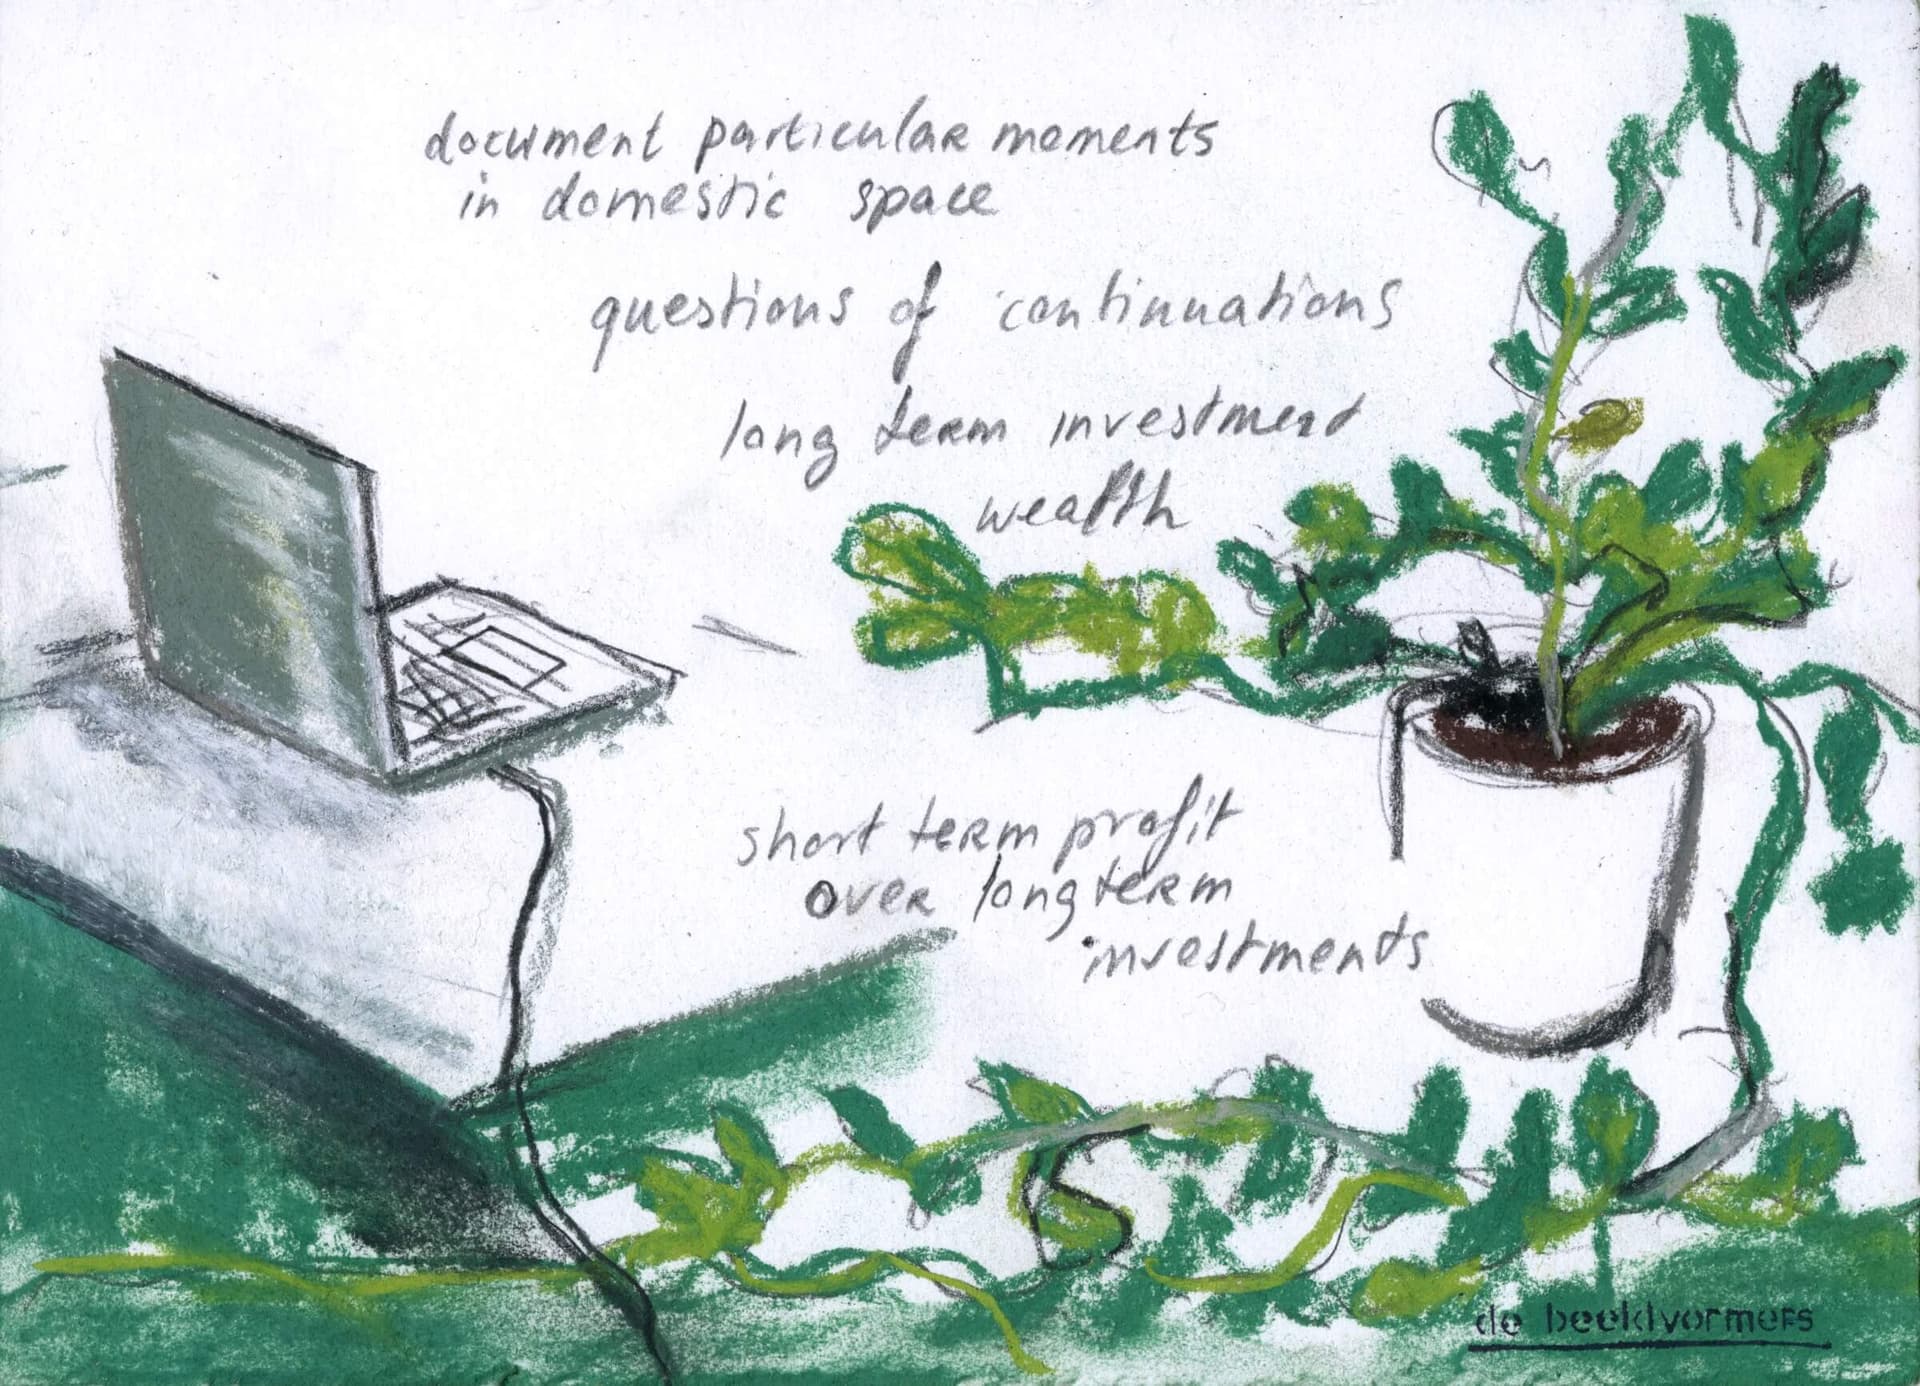 document particular moments
in domestic space
questions of continuations
long term investment
wealth
short term profit
over long term
investments
de beeldvormers